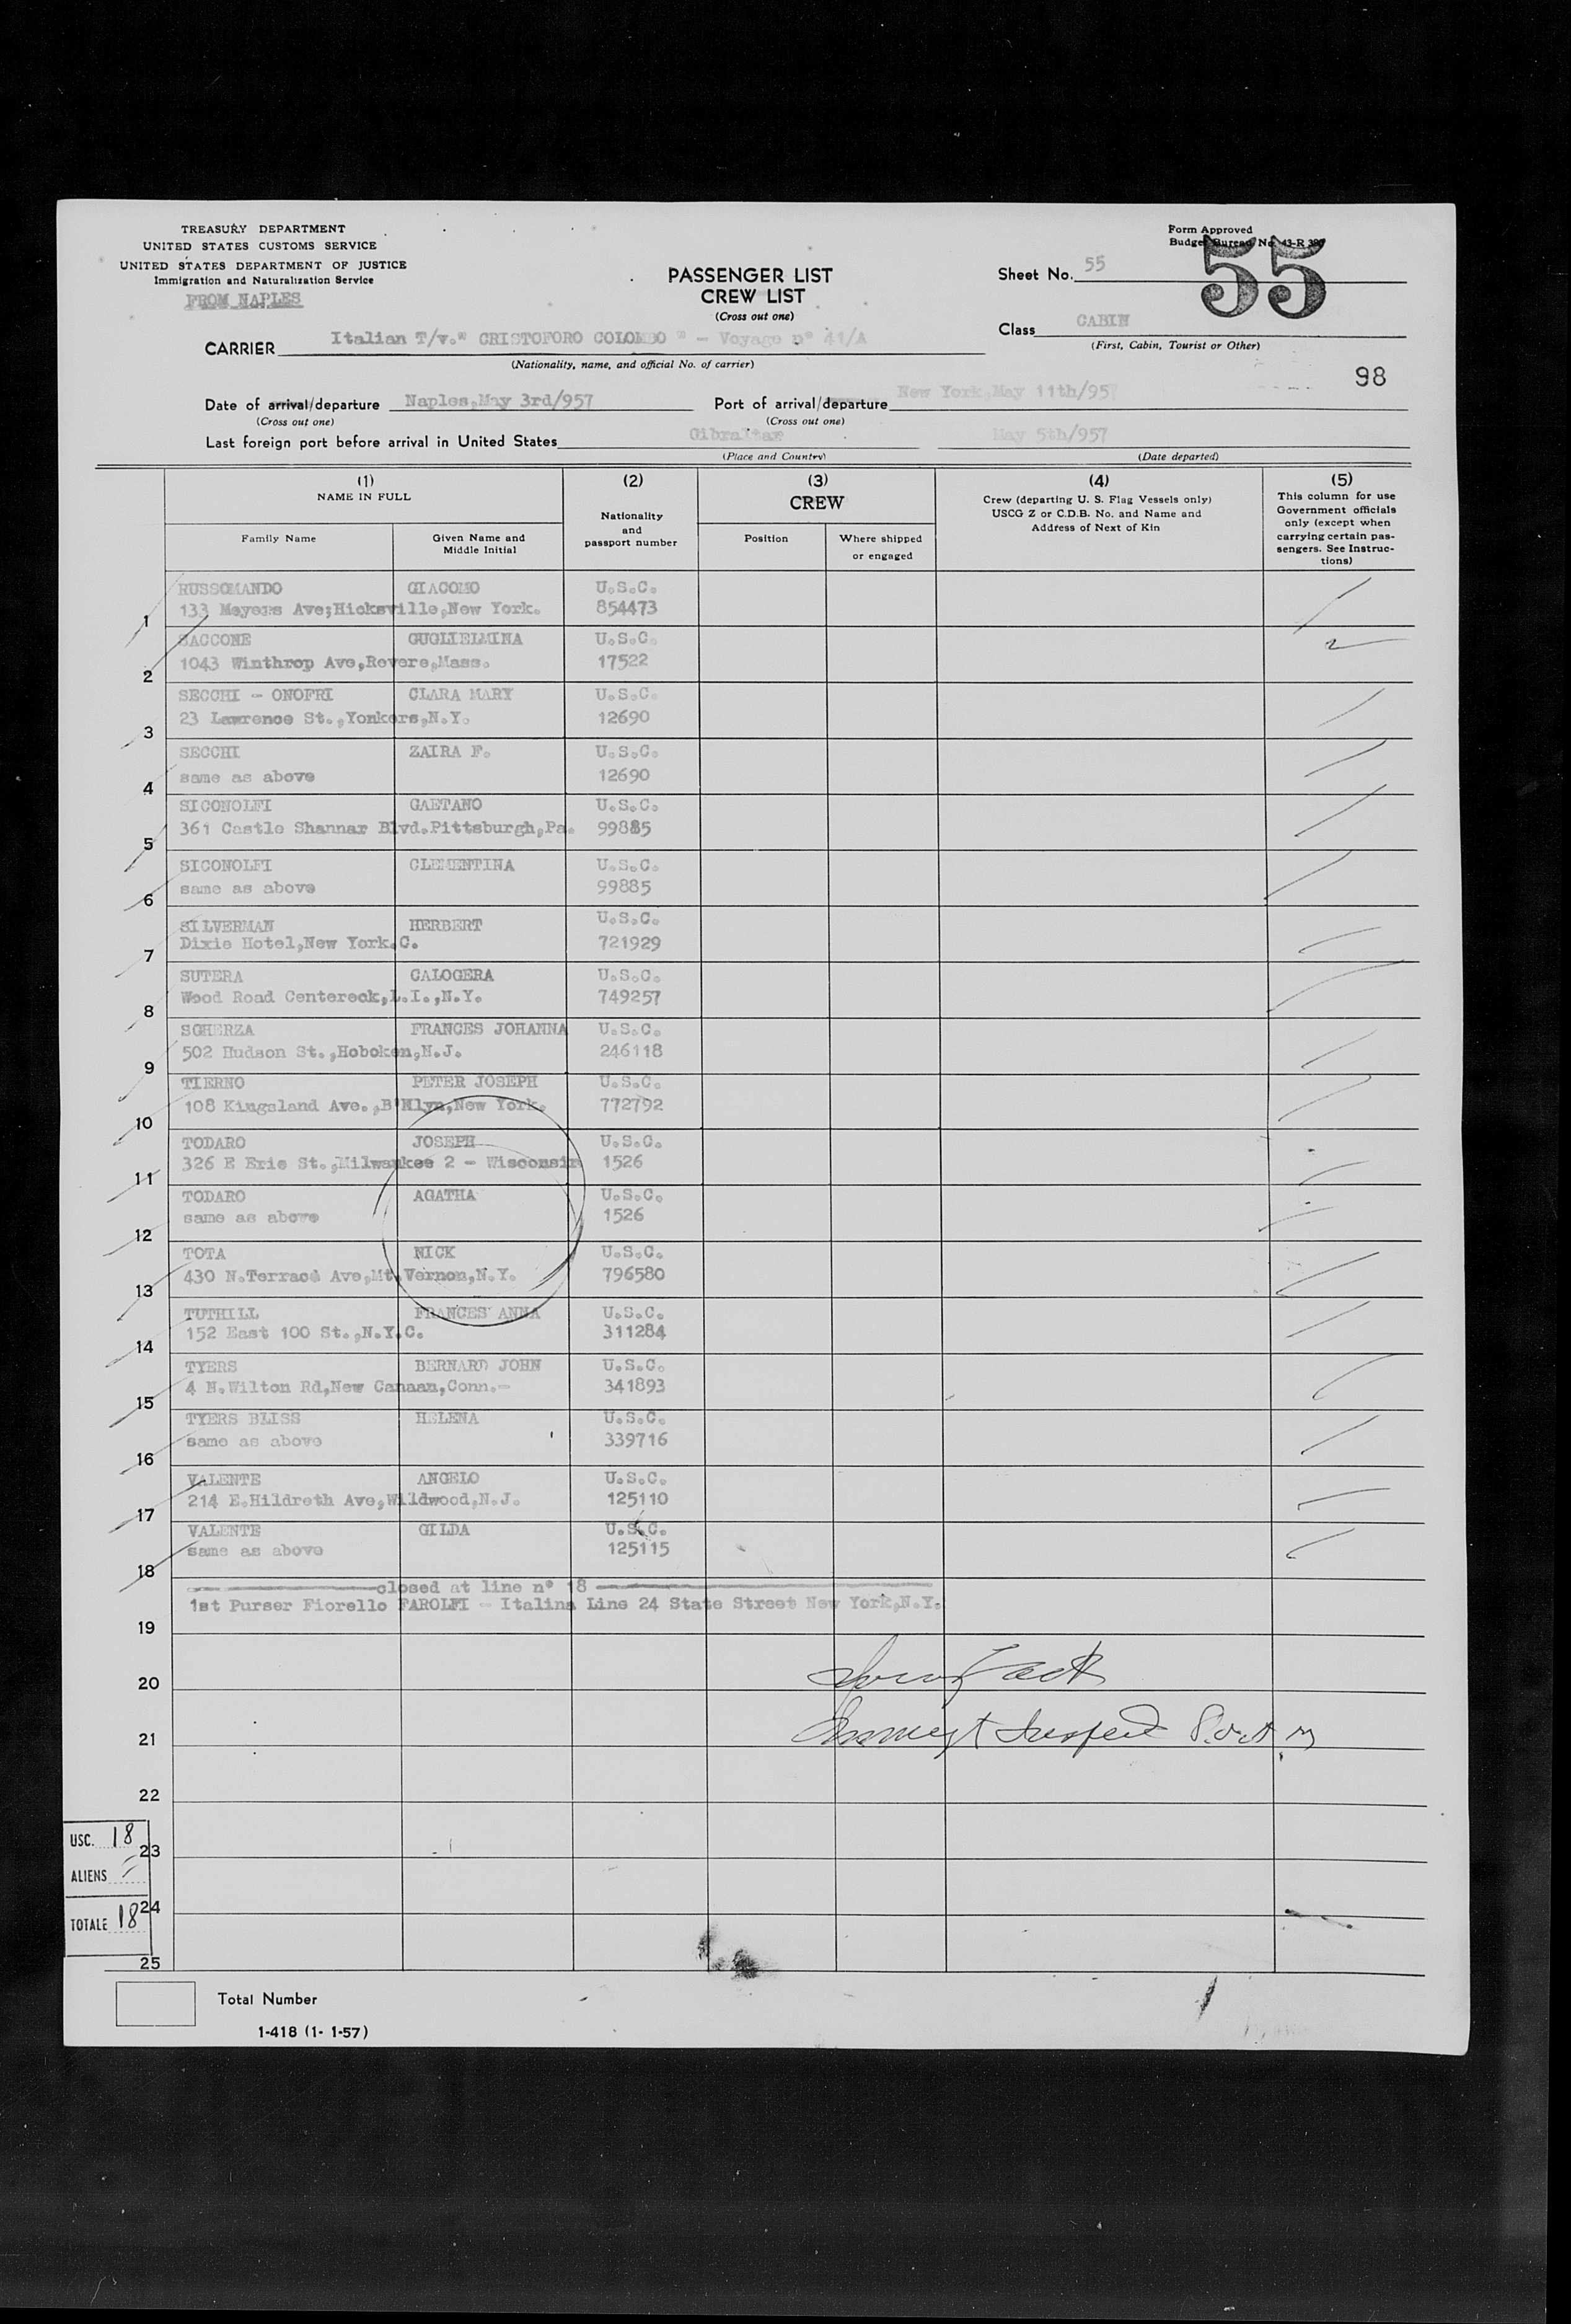 TREASURY DEPARTMENT
UNITED STATES CUSTOMS SERVICE
UNITED STATES DEPARTMENT OF JUSTICE
Immigration and Naturalization Service
FROM NAPLES
PASSENGER LIST
CREW LIST
(Cross out one)
Form Approved
Budget Bureau No. 43-R
55
Sheet No. 55
Class CABIN
(First, Cabin, Tourist or Other)
CARRIER Italian T/v." CRISTOFORO COLOMBO " - Voyage n° 41/A
(Nationality, name, and official No. of carrier)
98
Date of arrival/departure Naples,May 3rd/957
(Cross out one)
Port of arrival/departure New York,May 11th/957
(Cross out one)
Last foreign port before arrival in United States Gibraltar May 5th/957
(Place and Country) (Date departed)
(1) NAME IN FULL
Family Name
Given Name and Middle Initial
(2) Nationality and passport number
(3) CREW
Position
Where shipped or engaged
(4) Crew (departing U. S. Flag Vessels only) USCG Z or C.D.B. No. and Name and Address of Next of Kin
(5) This column for use Government officials only (except when carrying certain passengers. See Instructions)
RUSSOMANDO GIACOMO U.S.C.
1 133 Meyers Ave;Hicksville,New York. 854473
SACCONE GUGLIELMINA U.S.C.
2 1043 Winthrop Ave,Revere,Mass. 17522
SECCHI - ONOFRI CLARA MARY U.S.C.
3 23 Lawrence St.,Yonkers,N.Y. 12690
SECCHI ZAIRA F. U.S.C.
4 same as above 12690
SICONOLFI GAETANO U.S.C.
5 361 Castle Shannar Blvd.Pittsburgh,Pa. 99885
SICONOLFI CLEMENTINA U.S.C.
6 same as above 99885
SILVERMAN HERBERT U.S.C.
7 Dixie Hotel,New York.C. 721929
SUTERA CALOGERA U.S.C.
8 Wood Road Centereck,L.I.,N.Y. 749257
SCHERZA FRANCES JOHANNA U.S.C.
9 502 Hudson St.,Hoboken,N.J. 246118
TIERNO PETER JOSEPH U.S.C.
10 108 Kingsland Ave.,B'Klyn,New York. 772792
TODARO JOSEPH U.S.C.
11 326 E Erie St.,Milwaukee 2 - Wisconsin 1526
TODARO AGATHA U.S.C.
12 same as above 1526
TOTA NICK U.S.C.
13 430 N.Terrace Ave,Mt.Vernon,N.Y. 796580
TUTHILL FRANCES ANNA U.S.C.
14 152 East 100 St.,N.Y.C. 311284
TYERS BERNARD JOHN U.S.C.
15 4 N.Wilton Rd,New Canaan,Conn.- 341893
TYERS BLISS HELENA U.S.C.
16 same as above 339716
VALENTE ANGELO U.S.C.
17 214 E.Hildreth Ave,Wildwood,N.J. 125110
VALENTE GILDA U.S.C.
18 same as above 125115
closed at line n° 18
1st Purser Fiorello FAROLFI - Italina Line 24 State Street New York,N.Y.
19
20
21
22
23
24
25
USC. 18
ALIENS
TOTALE 18
Total Number
1-418 (1- 1-57)